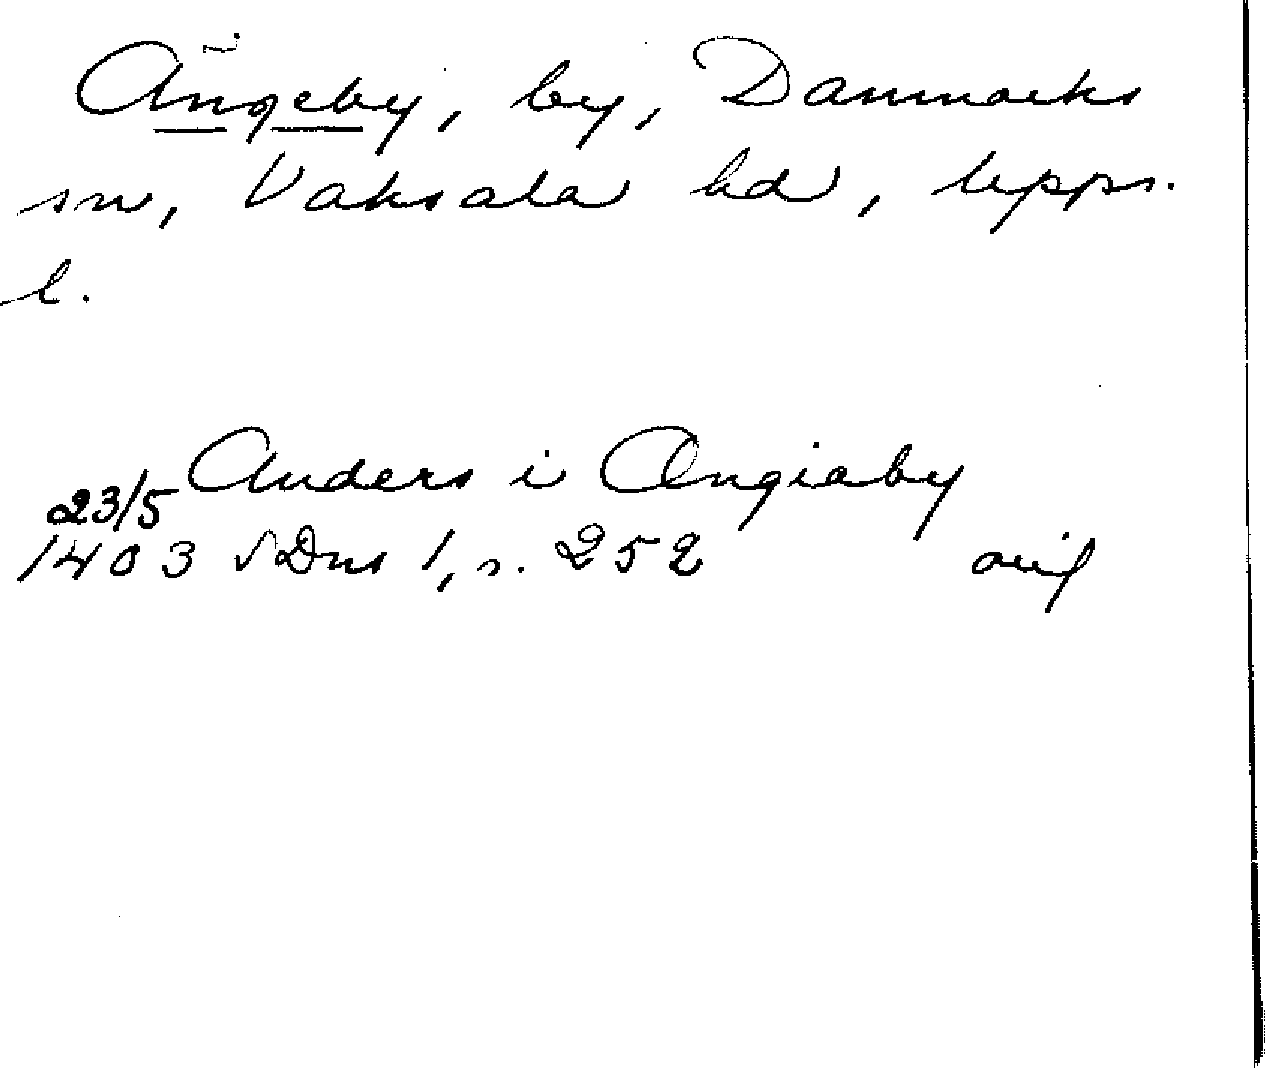 Ängeby, by, Danmarks
sn, Vaksala hd, Upps.
l.
Anders i Ængiaby
23/5
1403 SDns 1, s. 252 avsl